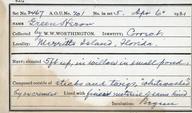 No. 2467 A.O.U. No. 201 No. in set 5 Apr 6th 188
Name Green Heron
Collected by W. W. WORTHINGTON. Identity Correct
Locality Merritts Island, Florida.
Nest: situated 5 ft up, in willow in small pond
Composed outside of sticks and twigs,
Lined with finer material of same kind
Incubation begun